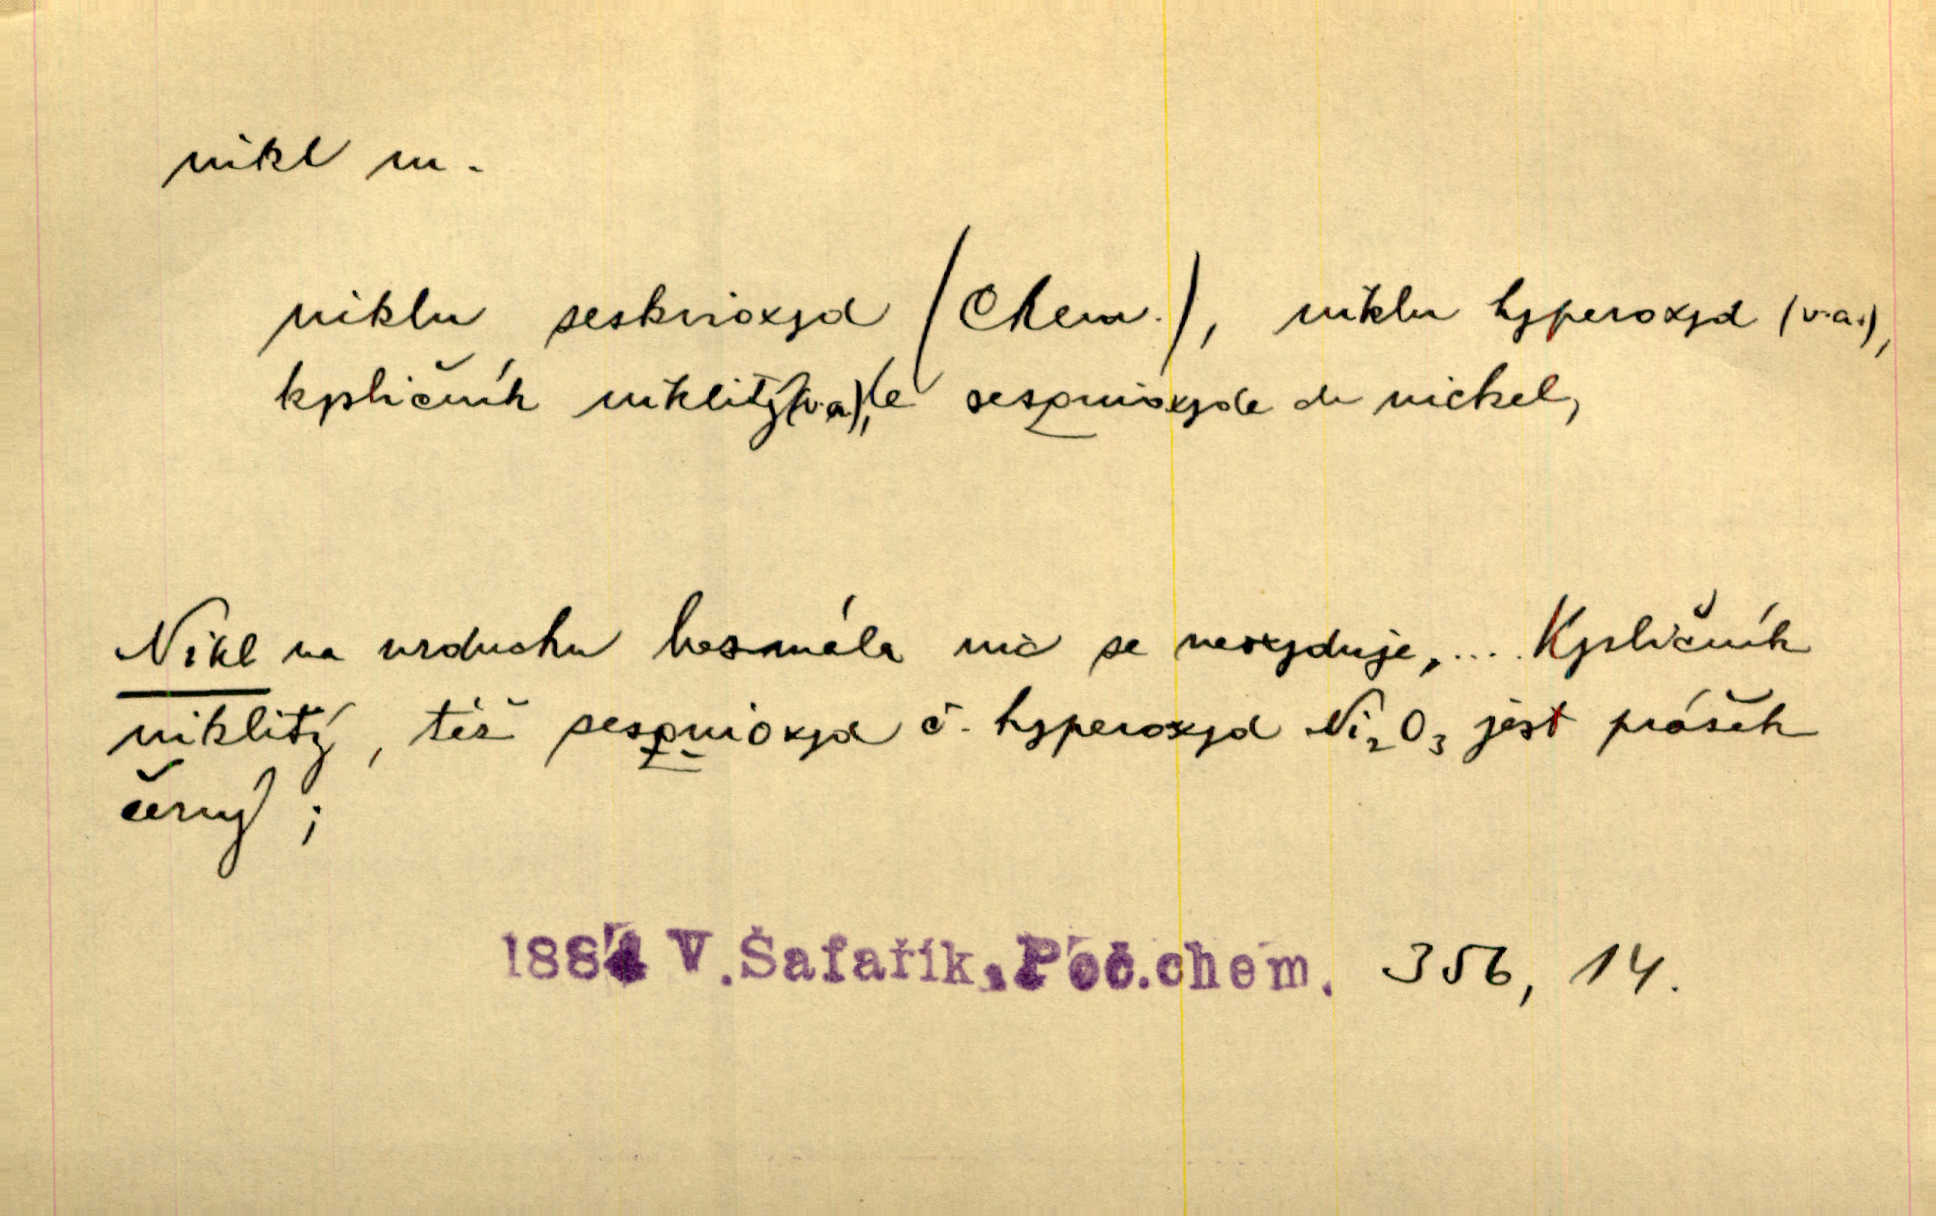 nikl m.
niklu seskvioxyd (Chem.), niklu hyperoxyd (v.a.),
kysličník niklitý (v.a.), le sesquioxyde du nickel,
Nikl na vzduchu bezmála nic se neoxyduje, .... Kysličník
niklitý, též sesquioxyd č. hyperoxyd Ni₂O₃ jest prášek
černý ;
1884 V. Šafařík, Poč.chem. 356, 14.